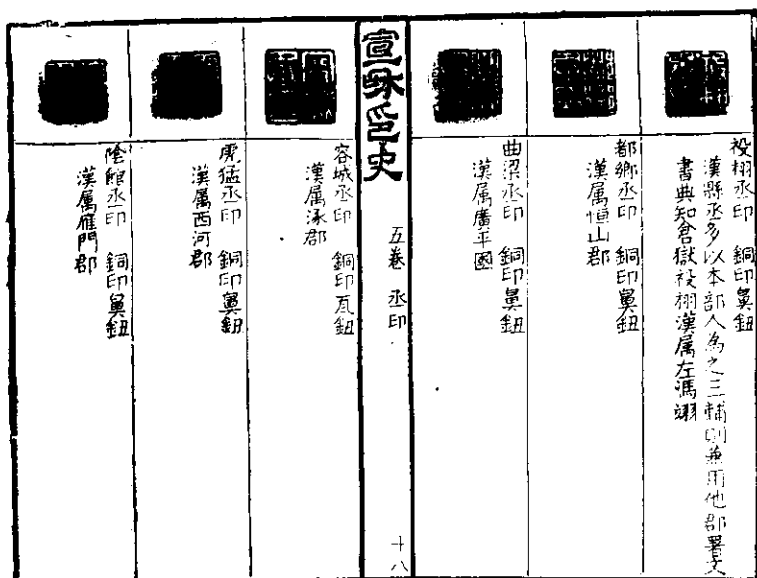 祋栩丞印 銅印鼻鈕
漢縣丞多以本部人為之三輔則兼用他郡署文
書典知倉獄祋栩漢属左馮翊
都鄉丞印 銅印鼻鈕
漢属恒山郡
曲梁丞印 銅印鼻鈕
漢属廣平國
宣和印史
五卷 丞印
十八
容城丞印 銅印瓦鈕
漢属涿郡
虎猛丞印 銅印鼻鈕
漢属西河郡
陰館丞印 銅印鼻鈕
漢属雁門郡